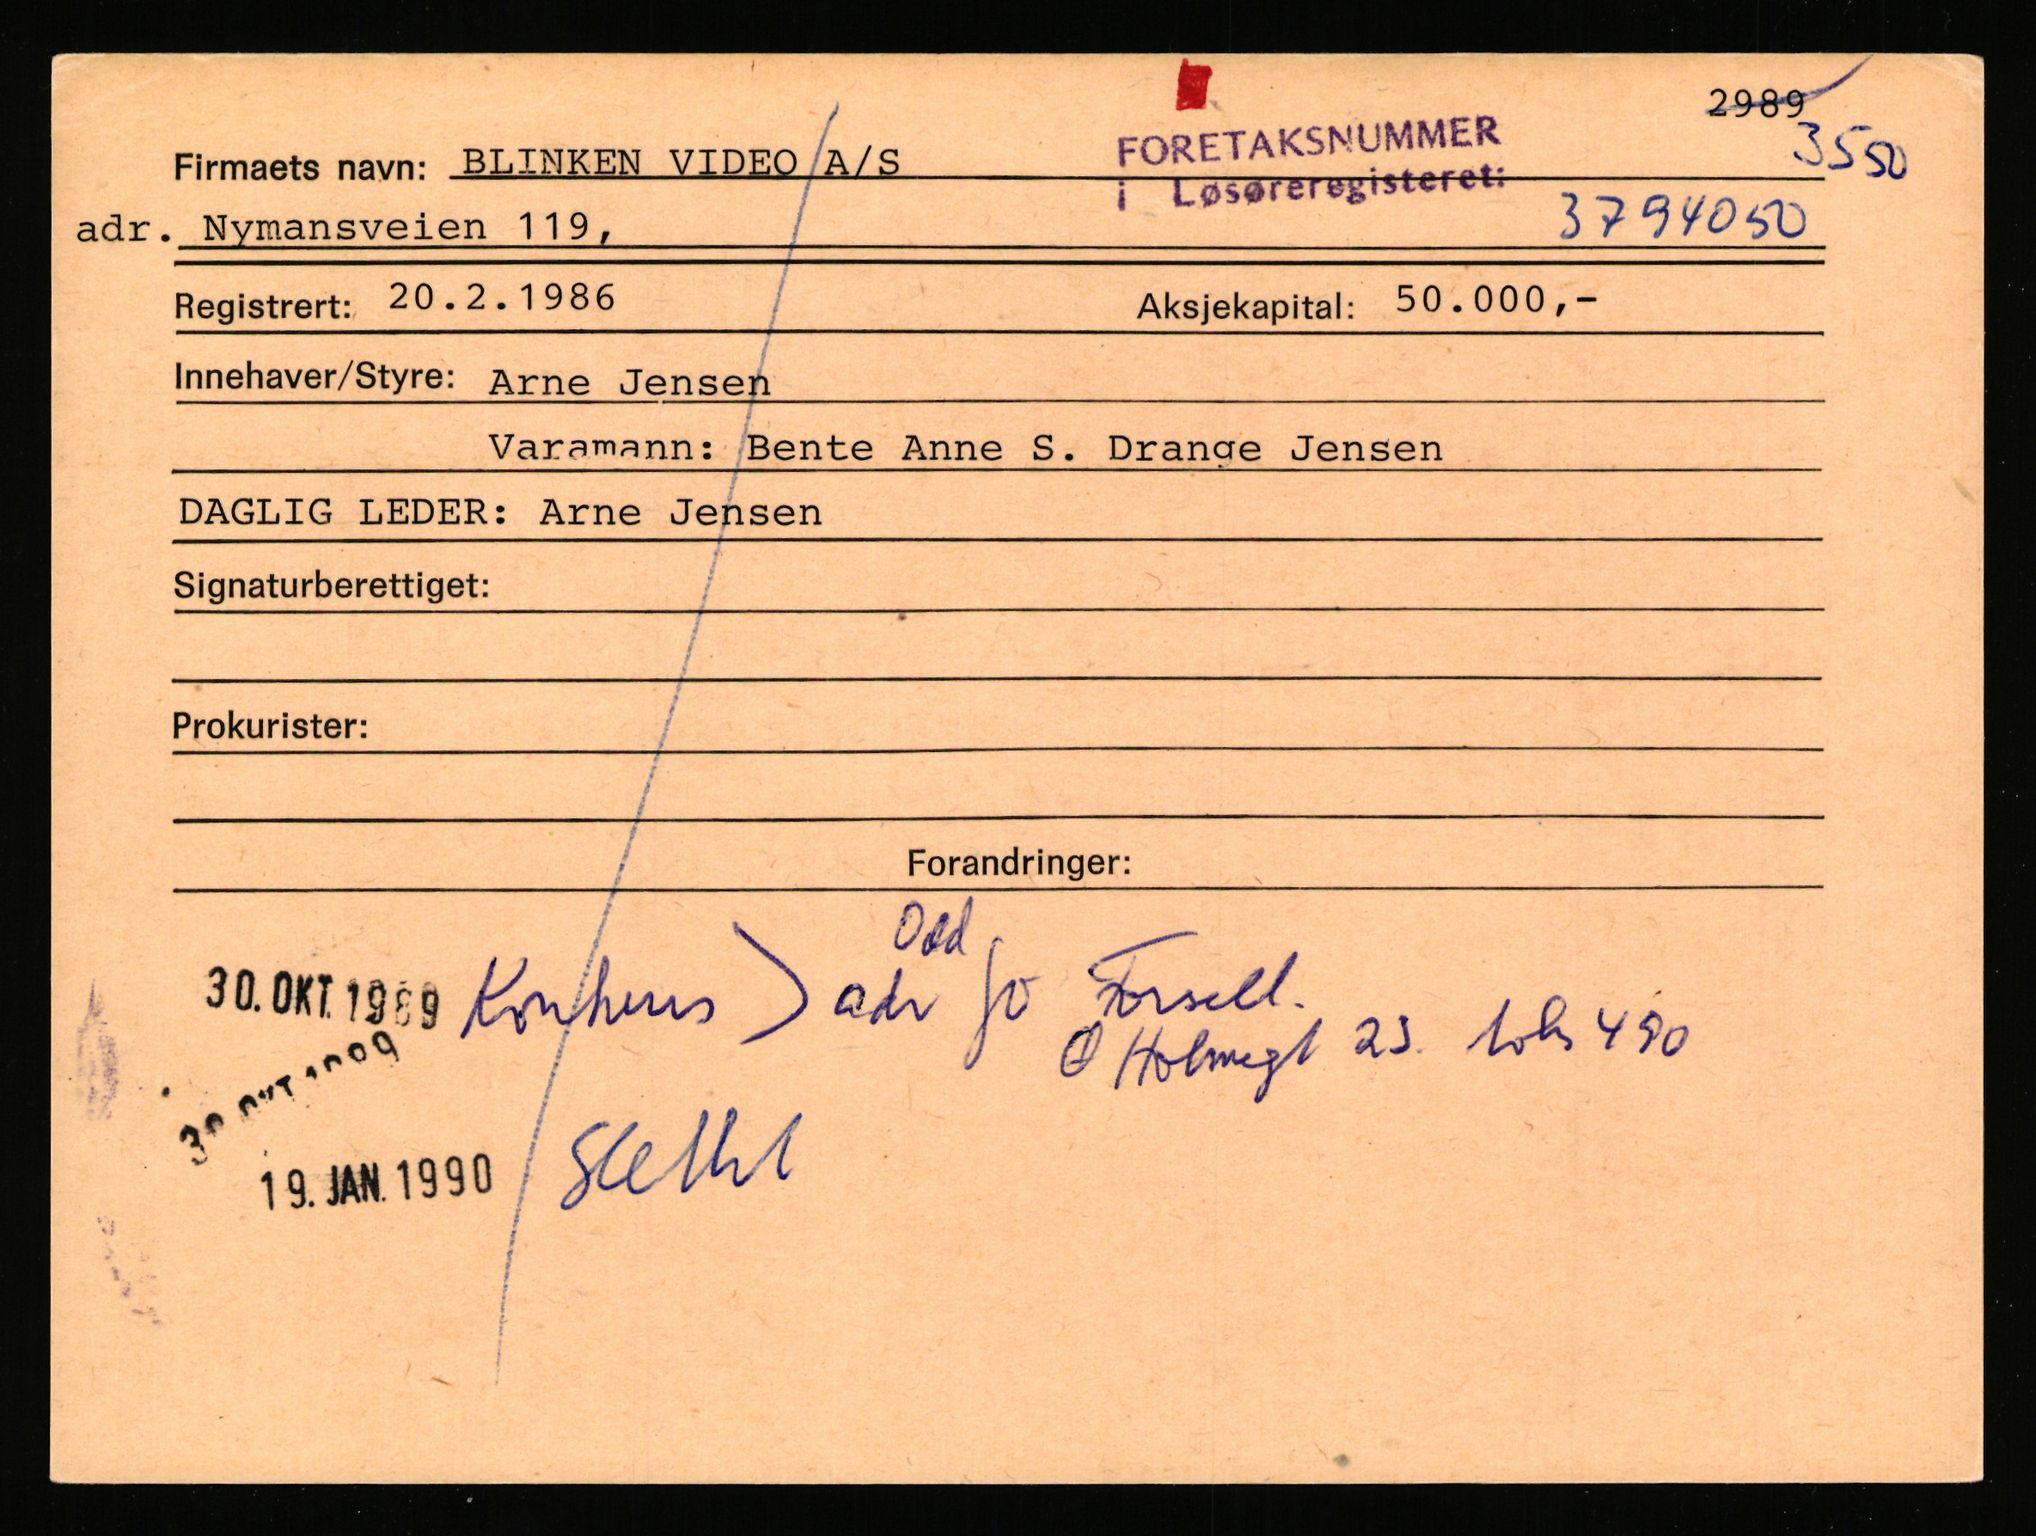 2989
3550
FORETAKSNUMMER
i Løsøreregisteret:
3794050
Firmaets navn: BLINKEN VIDEO A/S
adr. Nymansveien 119,
Registrert: 20.2.1986 Aksjekapital: 50.000,-
Innehaver/Styre: Arne Jensen
Varamann: Bente Anne S. Drange Jensen
DAGLIG LEDER: Arne Jensen
Signaturberettiget:
Prokurister:
Forandringer:
Odd
30. OKT. 1989 Konkurs adr Forsell.
Holmegt 23. boks 490
30 OKT 1989
19. JAN. 1990 Slettet